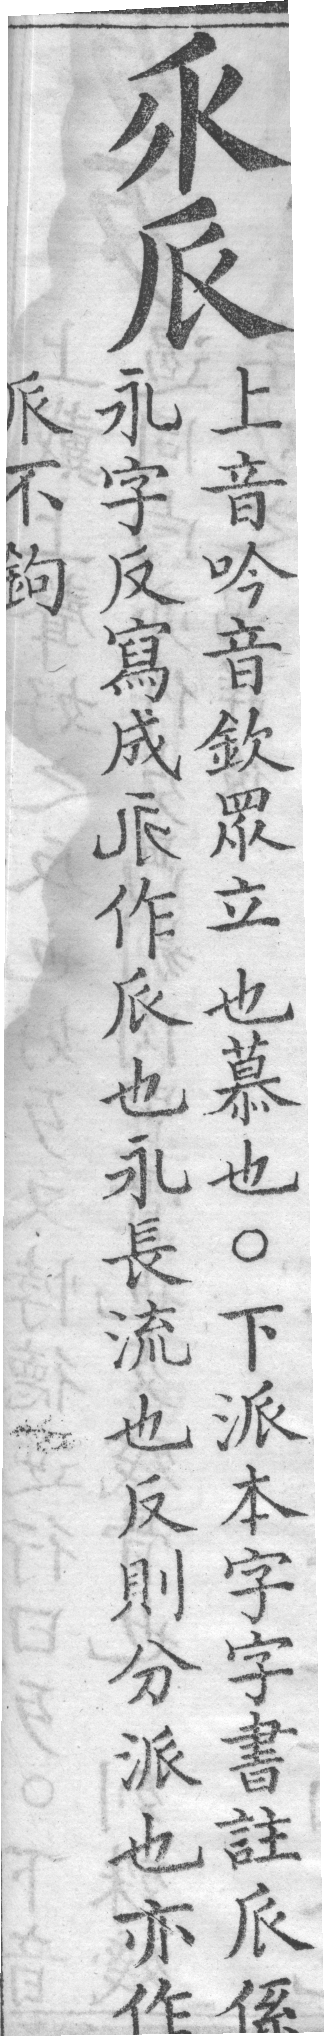 乑𠂢
上音吟音欽眾立也慕也○下派本字字書註𠂢係
永字反寫成𠂢作𠂢也永長流也反則分派也亦作
𠂢不鉤